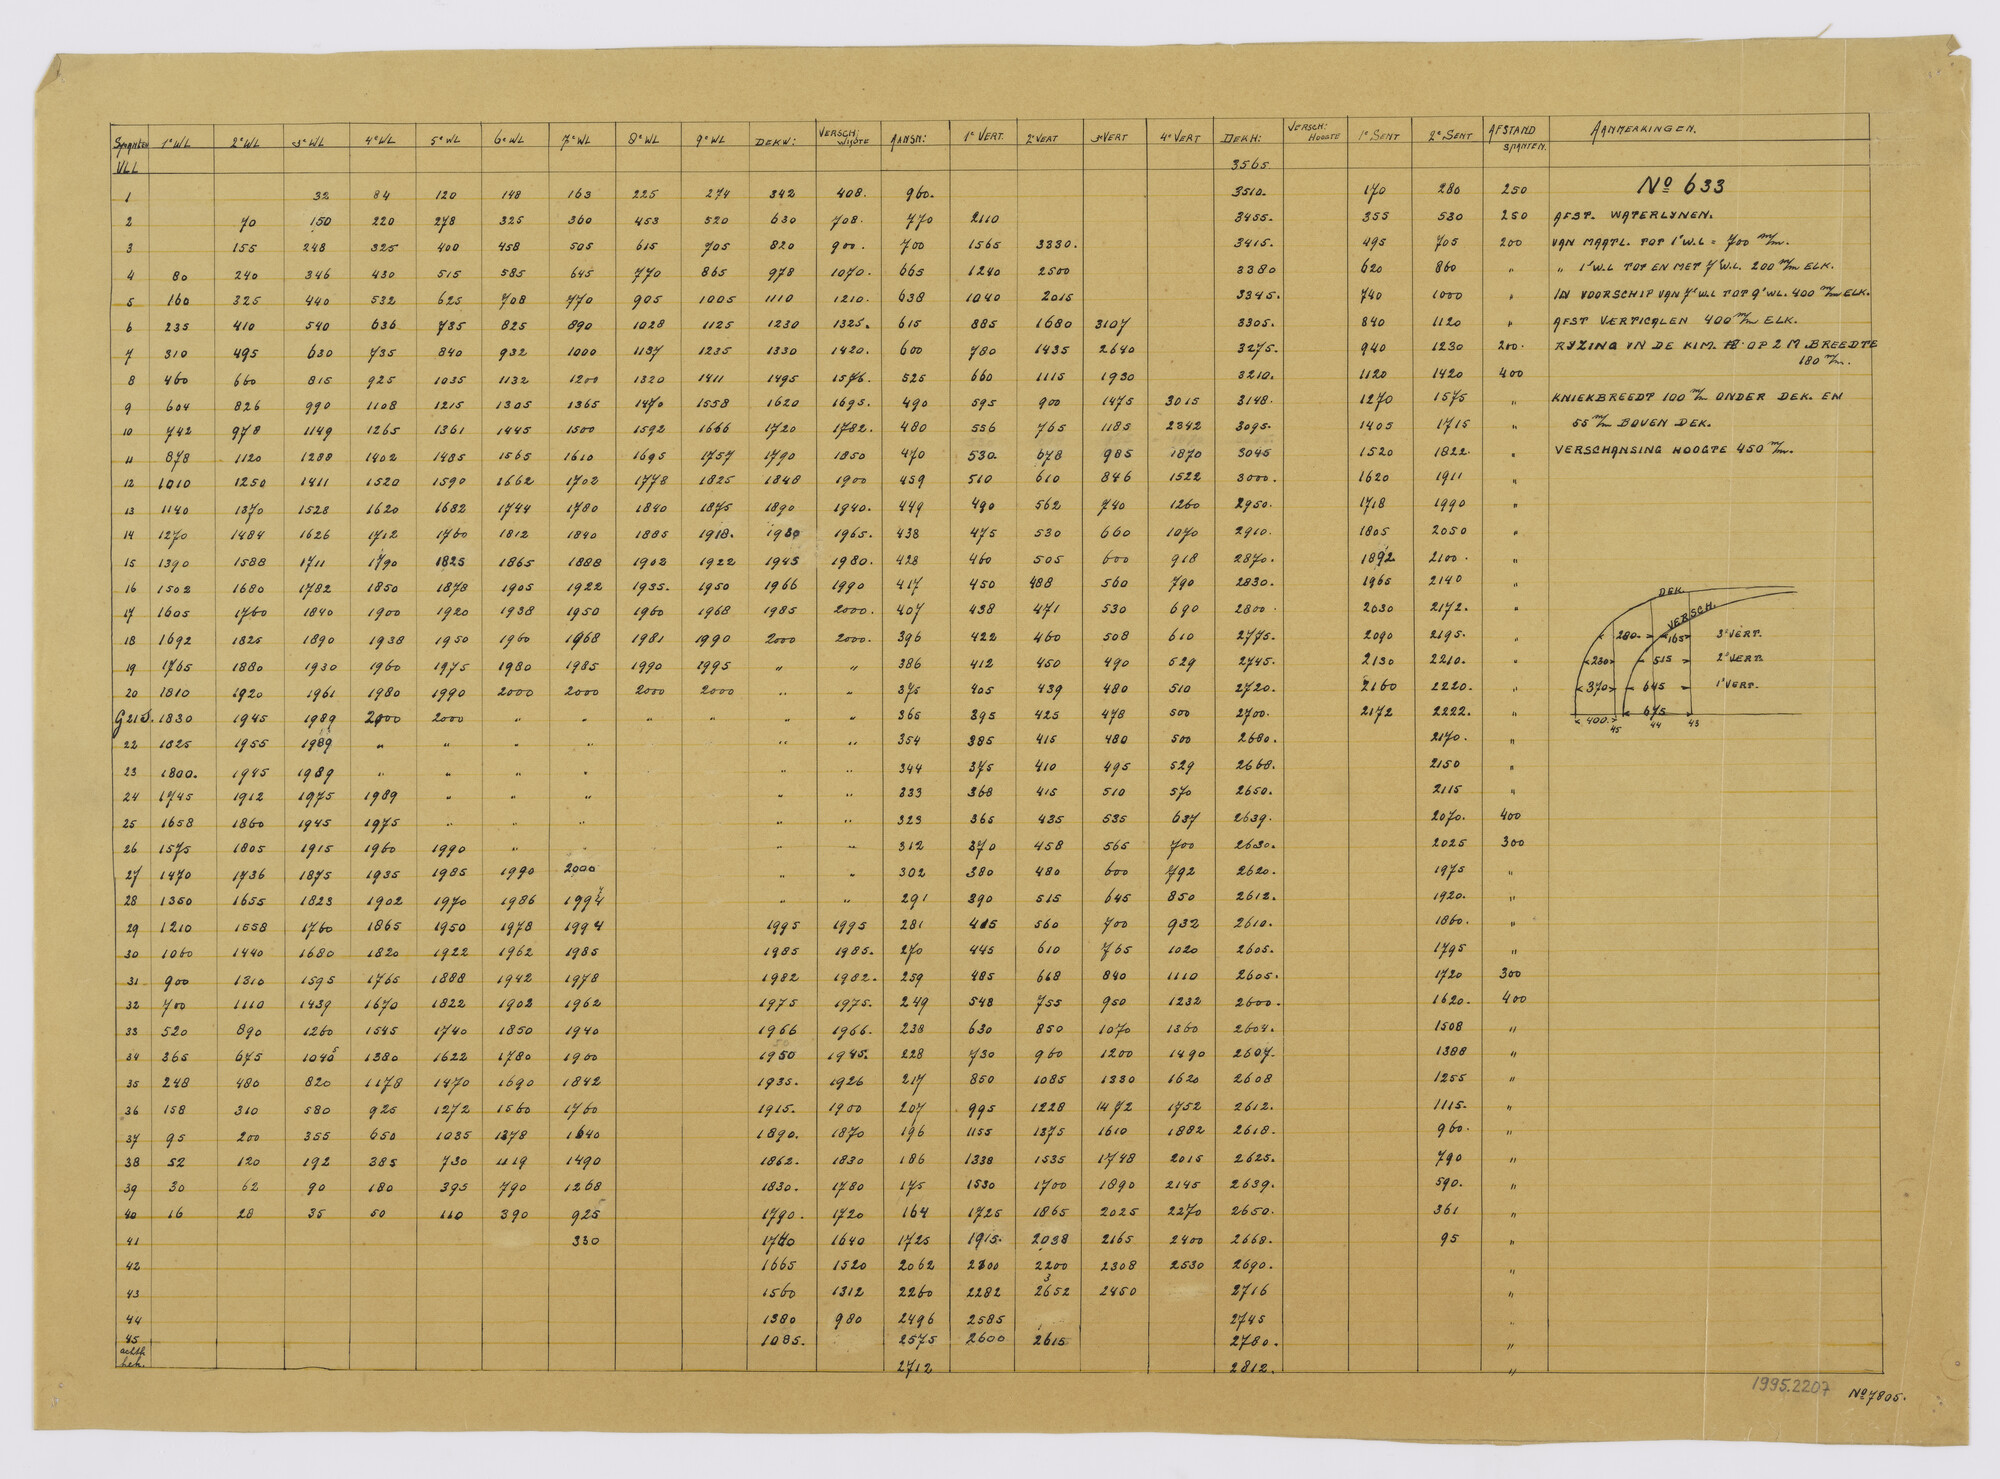 Spanten 1e WL 2e WL 3e WL 4e WL 5e WL 6e WL 7e WL 8e WL 9e WL DEKW: VERSCH: WIJDTE AANSN: 1e VERT. 2e VERT 3e VERT 4e VERT DEKH: VERSCH: HOOGTE 1e SENT 2e SENT AFSTAND SPANTEN. AANMERKINGEN.
VLL 3565
1 32 84 120 148 163 225 274 342 408. 960. 3510. 170 280 250 No 633
2 70 150 220 278 325 360 453 520 630 708. 770 2110 3455. 355 530 250 AFST. WATERLYNEN.
3 155 248 325 400 458 505 615 705 820 900. 700 1565 3330. 3415. 495 705 200 VAN MAATL. TOT 1e W.L = 700 m/m.
4 80 240 346 430 515 585 645 770 865 978 1070. 665 1240 2500 3380 620 860 " " 1e W.L TOT EN MET 7e W.L. 200 m/m ELK.
5 160 325 440 532 625 708 770 905 1005 1110 1210. 638 1040 2015 3345. 740 1000 " IN VOORSCHIP VAN 7e W.L TOT 9e WL. 400 m/m ELK.
6 235 410 540 636 735 825 890 1028 1125 1230 1325. 615 885 1680 3107 3305. 840 1120 " AFST VERTICALEN 400 m/m ELK.
7 310 495 630 735 840 932 1000 1137 1235 1330 1420. 600 780 1435 2640 3275. 940 1230 200. RYZING VN DE KIM. OP 2 M. BREEDTE
180 m/m.
8 460 660 815 925 1035 1132 1200 1320 1411 1495 1576. 525 660 1115 1930 3210. 1120 1420 400
9 604 826 990 1108 1215 1305 1365 1470 1558 1620 1695. 490 595 900 1475 3015 3148. 1270 1575 " KNIEKBREEDT 100 m/m ONDER DEK. EN
10 742 978 1149 1265 1361 1445 1500 1592 1666 1720 1782. 480 556 765 1185 2342 3095. 1405 1715 " 55 m/m BOVEN DEK.
11 878 1120 1288 1402 1485 1565 1610 1695 1757 1790 1850 470 530. 678 985 1870 3045 1520 1822. " VERSCHANSING HOOGTE 450 m/m.
12 1010 1250 1411 1520 1590 1662 1702 1778 1825 1848 1900 459 510 610 846 1522 3000. 1620 1911 "
13 1140 1370 1528 1620 1682 1744 1780 1840 1875 1890 1940. 449 490 562 740 1260 2950. 1718 1990 "
14 1270 1484 1626 1712 1760 1812 1840 1885 1918. 1930 1965. 438 475 530 660 1070 2910. 1805 2050 "
15 1390 1588 1711 1790 1825 1865 1888 1902 1922 1945 1980. 428 460 505 600 918 2870. 1892 2100. "
16 1502 1680 1782 1850 1878 1905 1922 1935. 1950 1966 1990 417 450 488 560 790 2830. 1965 2140 "
17 1605 1760 1840 1900 1920 1938 1950 1960 1968 1985 2000. 407 438 471 530 690 2800. 2030 2172. "
18 1692 1825 1890 1938 1950 1960 1968 1981 1990 2000 2000. 396 422 460 508 610 2775. 2090 2195. "
19 1765 1880 1930 1960 1975 1980 1985 1990 1995 " " 386 412 450 490 529 2745. 2130 2210. "
20 1810 1920 1961 1980 1990 2000 2000 2000 2000 " " 375 405 439 480 510 2720. 2160 2220. "
G21S. 1830 1945 1989 2000 2000 " " " " " " 365 395 425 478 500 2700. 2172 2222. "
22 1825 1955 1989 " " " " " " 354 385 415 480 500 2680. 2170. "
23 1800. 1945 1989 " " " " " " 344 375 410 495 529 2668. 2150 "
24 1745 1912 1975 1989 " " " " " 333 368 415 510 570 2650. 2115 "
25 1658 1860 1945 1975 " " " " " 323 365 435 535 637 2639. 2070. 400
26 1575 1805 1915 1960 1990 " " " " 312 370 458 565 700 2630. 2025 300
27 1470 1736 1875 1935 1985 1990 2000 " " 302 380 480 600 792 2620. 1975 "
28 1350 1655 1823 1902 1970 1986 1997 " " 291 390 515 645 850 2612. 1920. "
29 1210 1558 1760 1865 1950 1978 1994 1995 1995 281 415 560 700 932 2610. 1860. "
30 1060 1440 1680 1820 1922 1962 1985 1985 1985. 270 445 610 765 1020 2605. 1795 "
31 900 1310 1595 1765 1888 1942 1978 1982 1982. 259 485 668 840 1110 2605. 1720 300
32 700 1110 1439 1670 1822 1902 1962 1975 1975. 249 548 755 950 1232 2600. 1620. 400
33 520 890 1260 1545 1740 1850 1940 1966 1966. 238 630 850 1070 1360 2604. 1508 "
34 365 675 1040 1380 1622 1780 1900 1950 1945. 228 730 960 1200 1490 2607. 1388 "
35 248 480 820 1178 1470 1690 1842 1935. 1926 217 850 1085 1330 1620 2608 1255 "
36 158 310 580 925 1272 1560 1760 1915. 1900 207 995 1228 1472 1752 2612. 1115. "
37 95 200 355 650 1035 1378 1640 1890. 1870 196 1155 1375 1610 1882 2618. 960. "
38 52 120 192 385 730 1119 1490 1862. 1830 186 1338 1535 1748 2015 2625. 790 "
39 30 62 90 180 395 790 1268 1830. 1780 175 1530 1700 1890 2145 2639. 590. "
40 16 28 35 50 110 390 925 1790. 1720 164 1725 1865 2025 2270 2650. 361 "
41 330 1740 1640 1725 1915. 2038 2165 2400 2668. 95 "
42 1665 1520 2062 2200 2308 2530 2690. "
43 1560 1312 2260 2282 2450 2716 "
44 1380 980 2496 2585 2745 "
45 1085. 2575 2600 2615 2780. "
achth.
hek. 2712 2812. "
DEK.
VERSCH.
280. 165 3e VERT.
230 515 2e VERT.
370 645 1e VERT.
400. 675
45 44 43
1995.2207 No 7805.